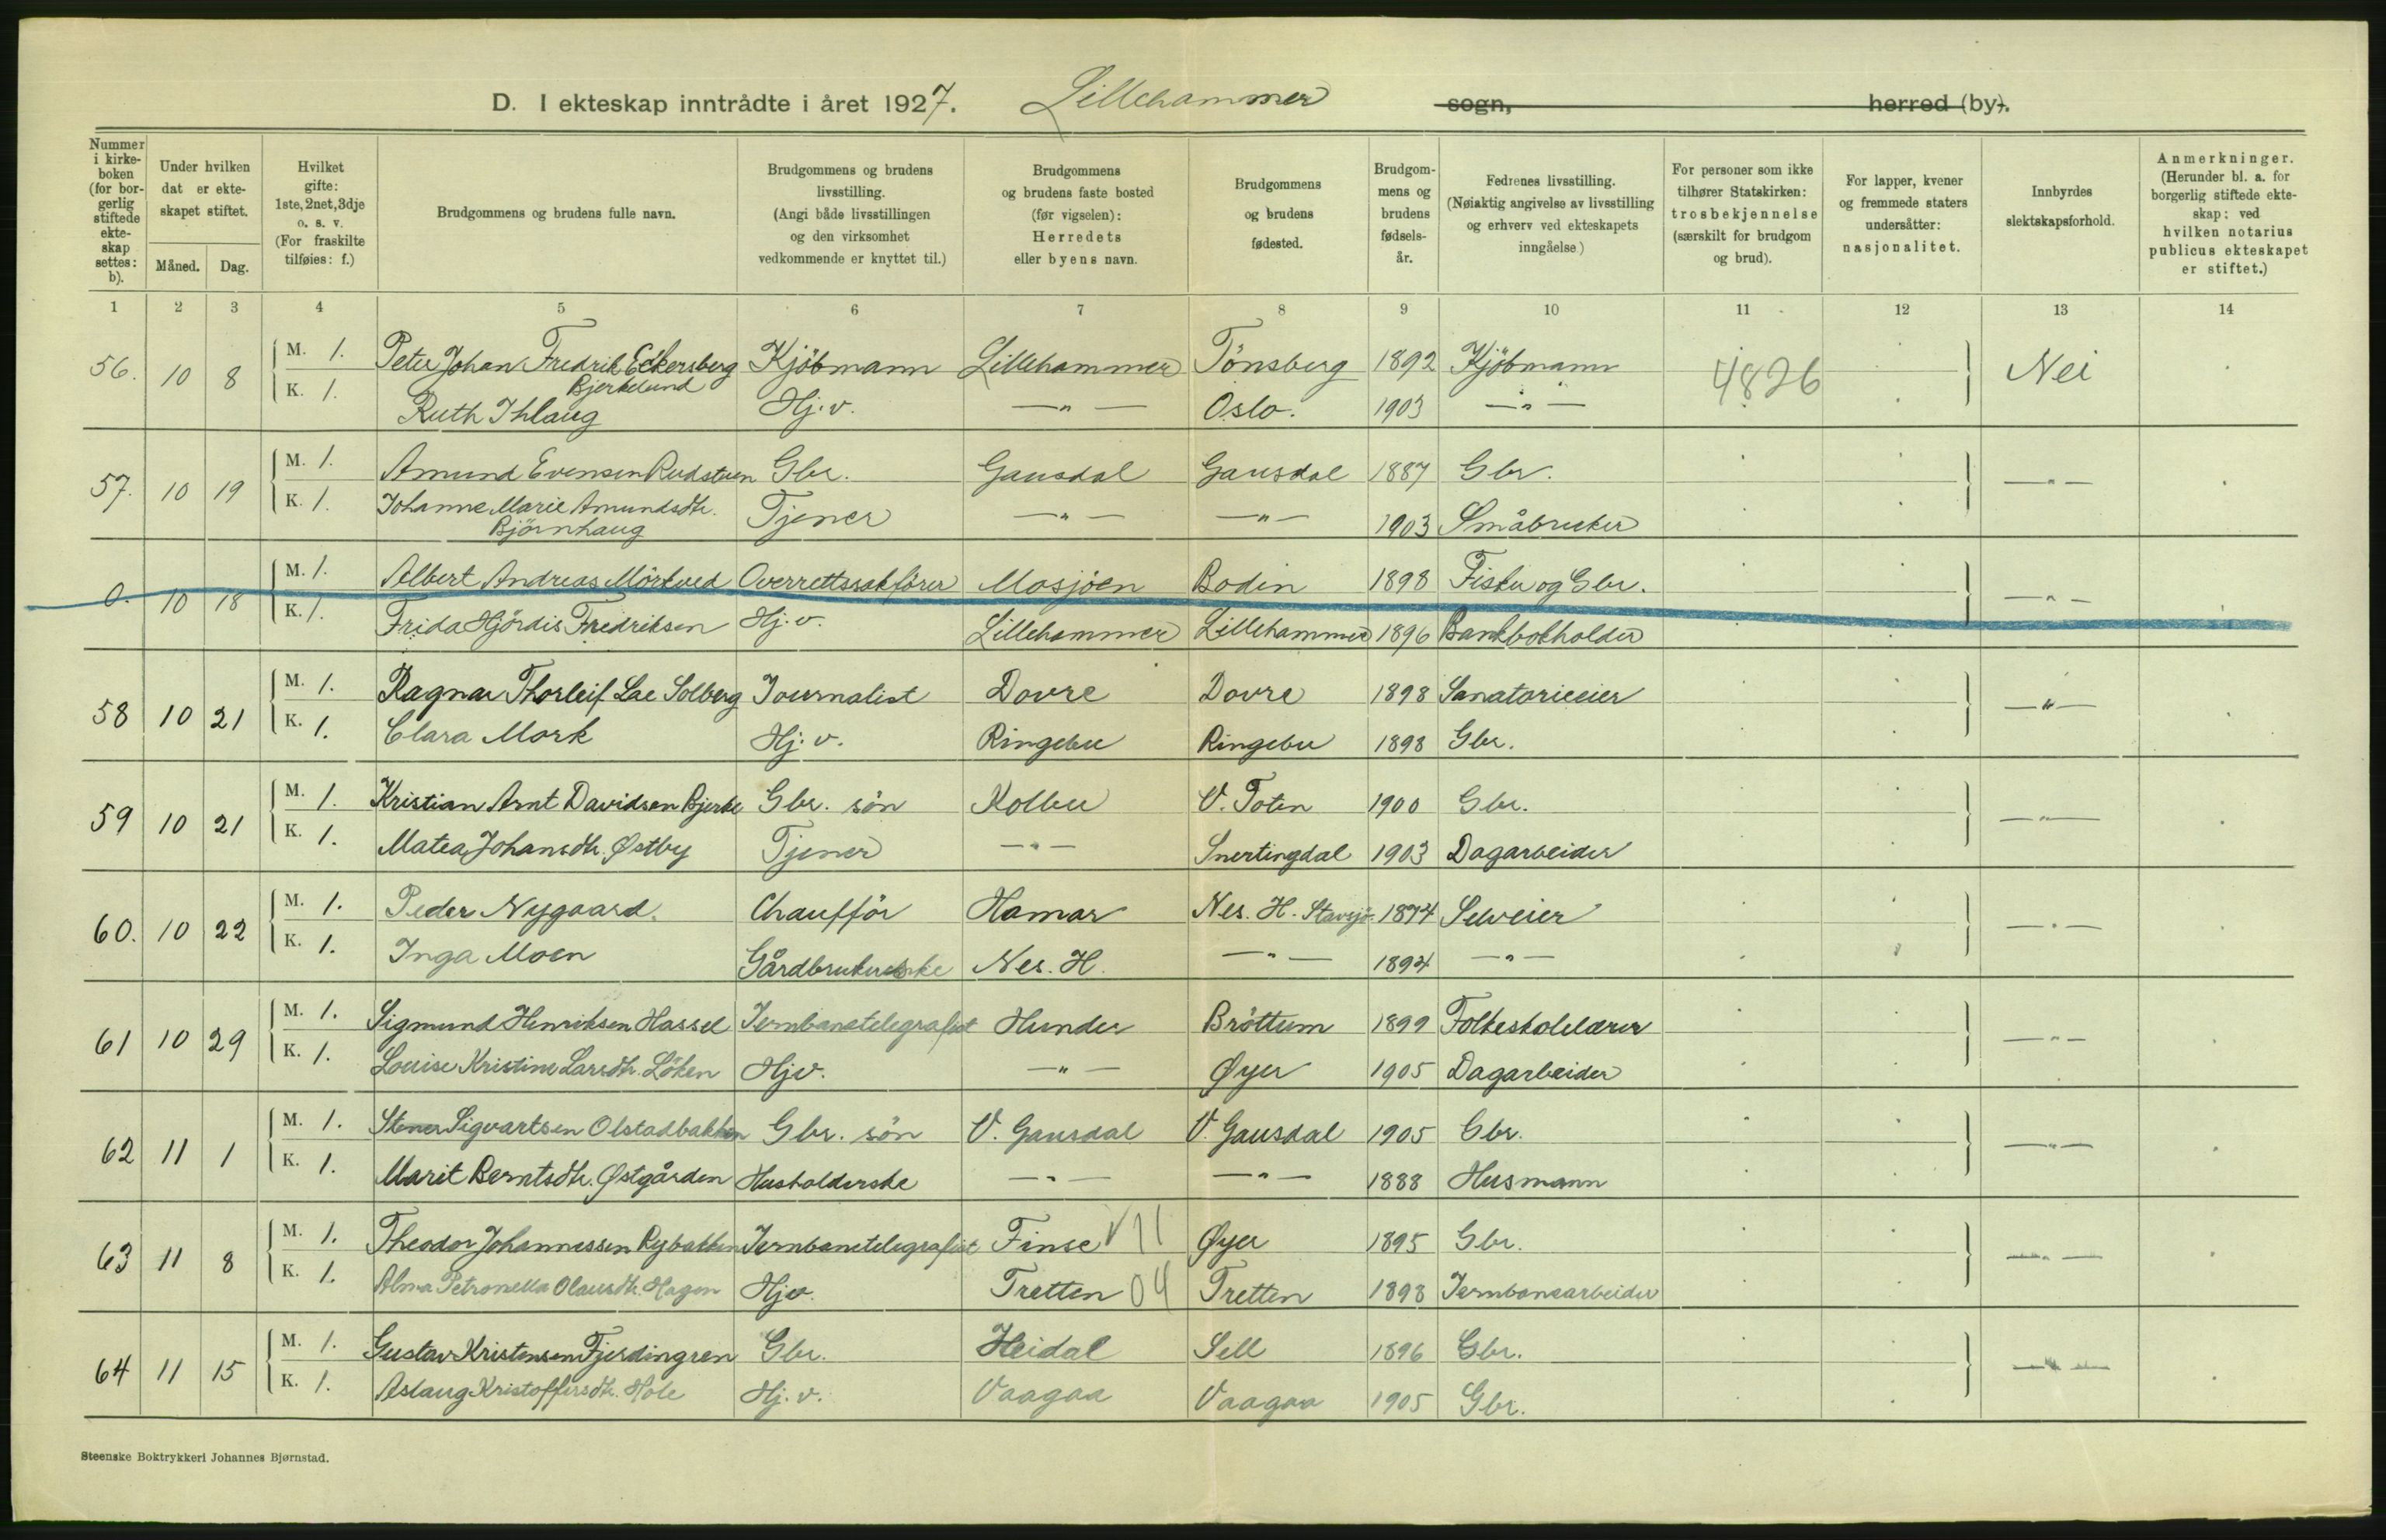 D. I ekteskap inntrådte i året 1927. Lillehammer sogn, herred (by).
Nummer i kirkeboken (for borgerlig stiftede ekteskap settes: b).
Under hvilken dat er ekteskapet stiftet.
Måned. Dag.
Hvilket gifte: 1ste, 2net, 3dje o. s. v. (For fraskilte tilføies: f.)
Brudgommens og brudens fulle navn.
Brudgommens og brudens livsstilling. (Angi både livsstillingen og den virksomhet vedkommende er knyttet til.)
Brudgommens og brudens faste bosted (før vigselen): Herredets eller byens navn.
Brudgommens og brudens fødested.
Brudgommens og brudens fødselsår.
Fedrenes livsstilling. (Nøiaktig angivelse av livsstilling og erhverv ved ekteskapets inngåelse.)
For personer som ikke tilhører Statskirken: trosbekjennelse (særskilt for brudgom og brud).
For lapper, kvener og fremmede staters undersåtter: nasjonalitet.
Innbyrdes slektskapsforhold.
Anmerkninger. (Herunder bl. a. for borgerlig stiftede ekteskap: ved hvilken notarius publicus ekteskapet er stiftet.)
1 2 3 4 5 6 7 8 9 10 11 12 13 14
56. 10 8 M. 1. Peter Johan Fredrik Eckersberg Bjerkelund Kjöbmann Lillehammer Tönsberg 1892 Kjöbmann 4826 Nei
K. 1. Ruth Ihlaug Hj.v. —"— Oslo. 1903 —"—
57. 10 19 M. 1. Amund Evensen Rudsteen Gbr. Gausdal Gausdal 1887 Gbr. —"—
K. 1. Johanne Marie Amundsdtr. Björnhaug Tjener —"— —"— 1903 Småbruker
0. 10 18 M. 1. Albert Andreas Mörkved Overrettssakförer Mosjöen Bodin 1898 Fisker og Gbr. —"—
K. 1. Frida Hjördis Fredriksen Hj.v. Lillehammer Lillehammer 1896 Bankbokholder
58 10 21 M. 1. Ragnar Thorleif Lae Solberg Journalist Dovre Dovre 1898 Sanatorieeier —"—
K. 1. Clara Mork Hj.v. Ringebu Ringebu 1898 Gbr.
59 10 21 M. 1. Kristian Arnt Davidsen Bjerke Gbr. sön Kolbu V. Toten 1900 Gbr. —"—
K. 1. Matea Johansdtr. Østby Tjener —"— Snertingdal 1903 Dagarbeider
60. 10 22 M. 1. Peder Nygaard. Chaufför Hamar Nes. H. Stavsjö 1894 Selveier —"—
K. 1. Inga Moen Gårdbrukerske Nes. H. —"— 1894 —"—
61 10 29 M. 1. Sigmund Henriksen Hassel Jernbanetelegrafist Hunder Bröttum 1899 Folkeskolelærer —"—
K. 1. Louise Kristine Larsdtr. Löken Hjv. —"— Øyer 1905 Dagarbeider
62 11 1 M. 1. Stener Sigvartsen Olstadbakken Gbr. sön V. Gausdal V. Gausdal 1905 Gbr. —"—
K. 1. Marit Berntsdtr. Østgården Husholderske —"— —"— 1888 Husmann
63 11 8 M. 1. Theodor Johannessen Rybakken Jernbanetelegrafist Finse V11 Øyer 1895 Gbr. —"—
K. 1. Alma Petronella Olausdtr. Hagen Hjv. Tretten 04 Tretten 1898 Jernbanearbeider
64 11 15 M. 1. Gustav Kristensen Fjerdingren Gbr. Heidal Sell 1896 Gbr. —"—
K. 1. Aslaug Kristoffersdtr. Hole Hj.v. Vaagaa Vaagaa 1905 Gbr.
Steenske Boktrykkeri Johannes Bjørnstad.